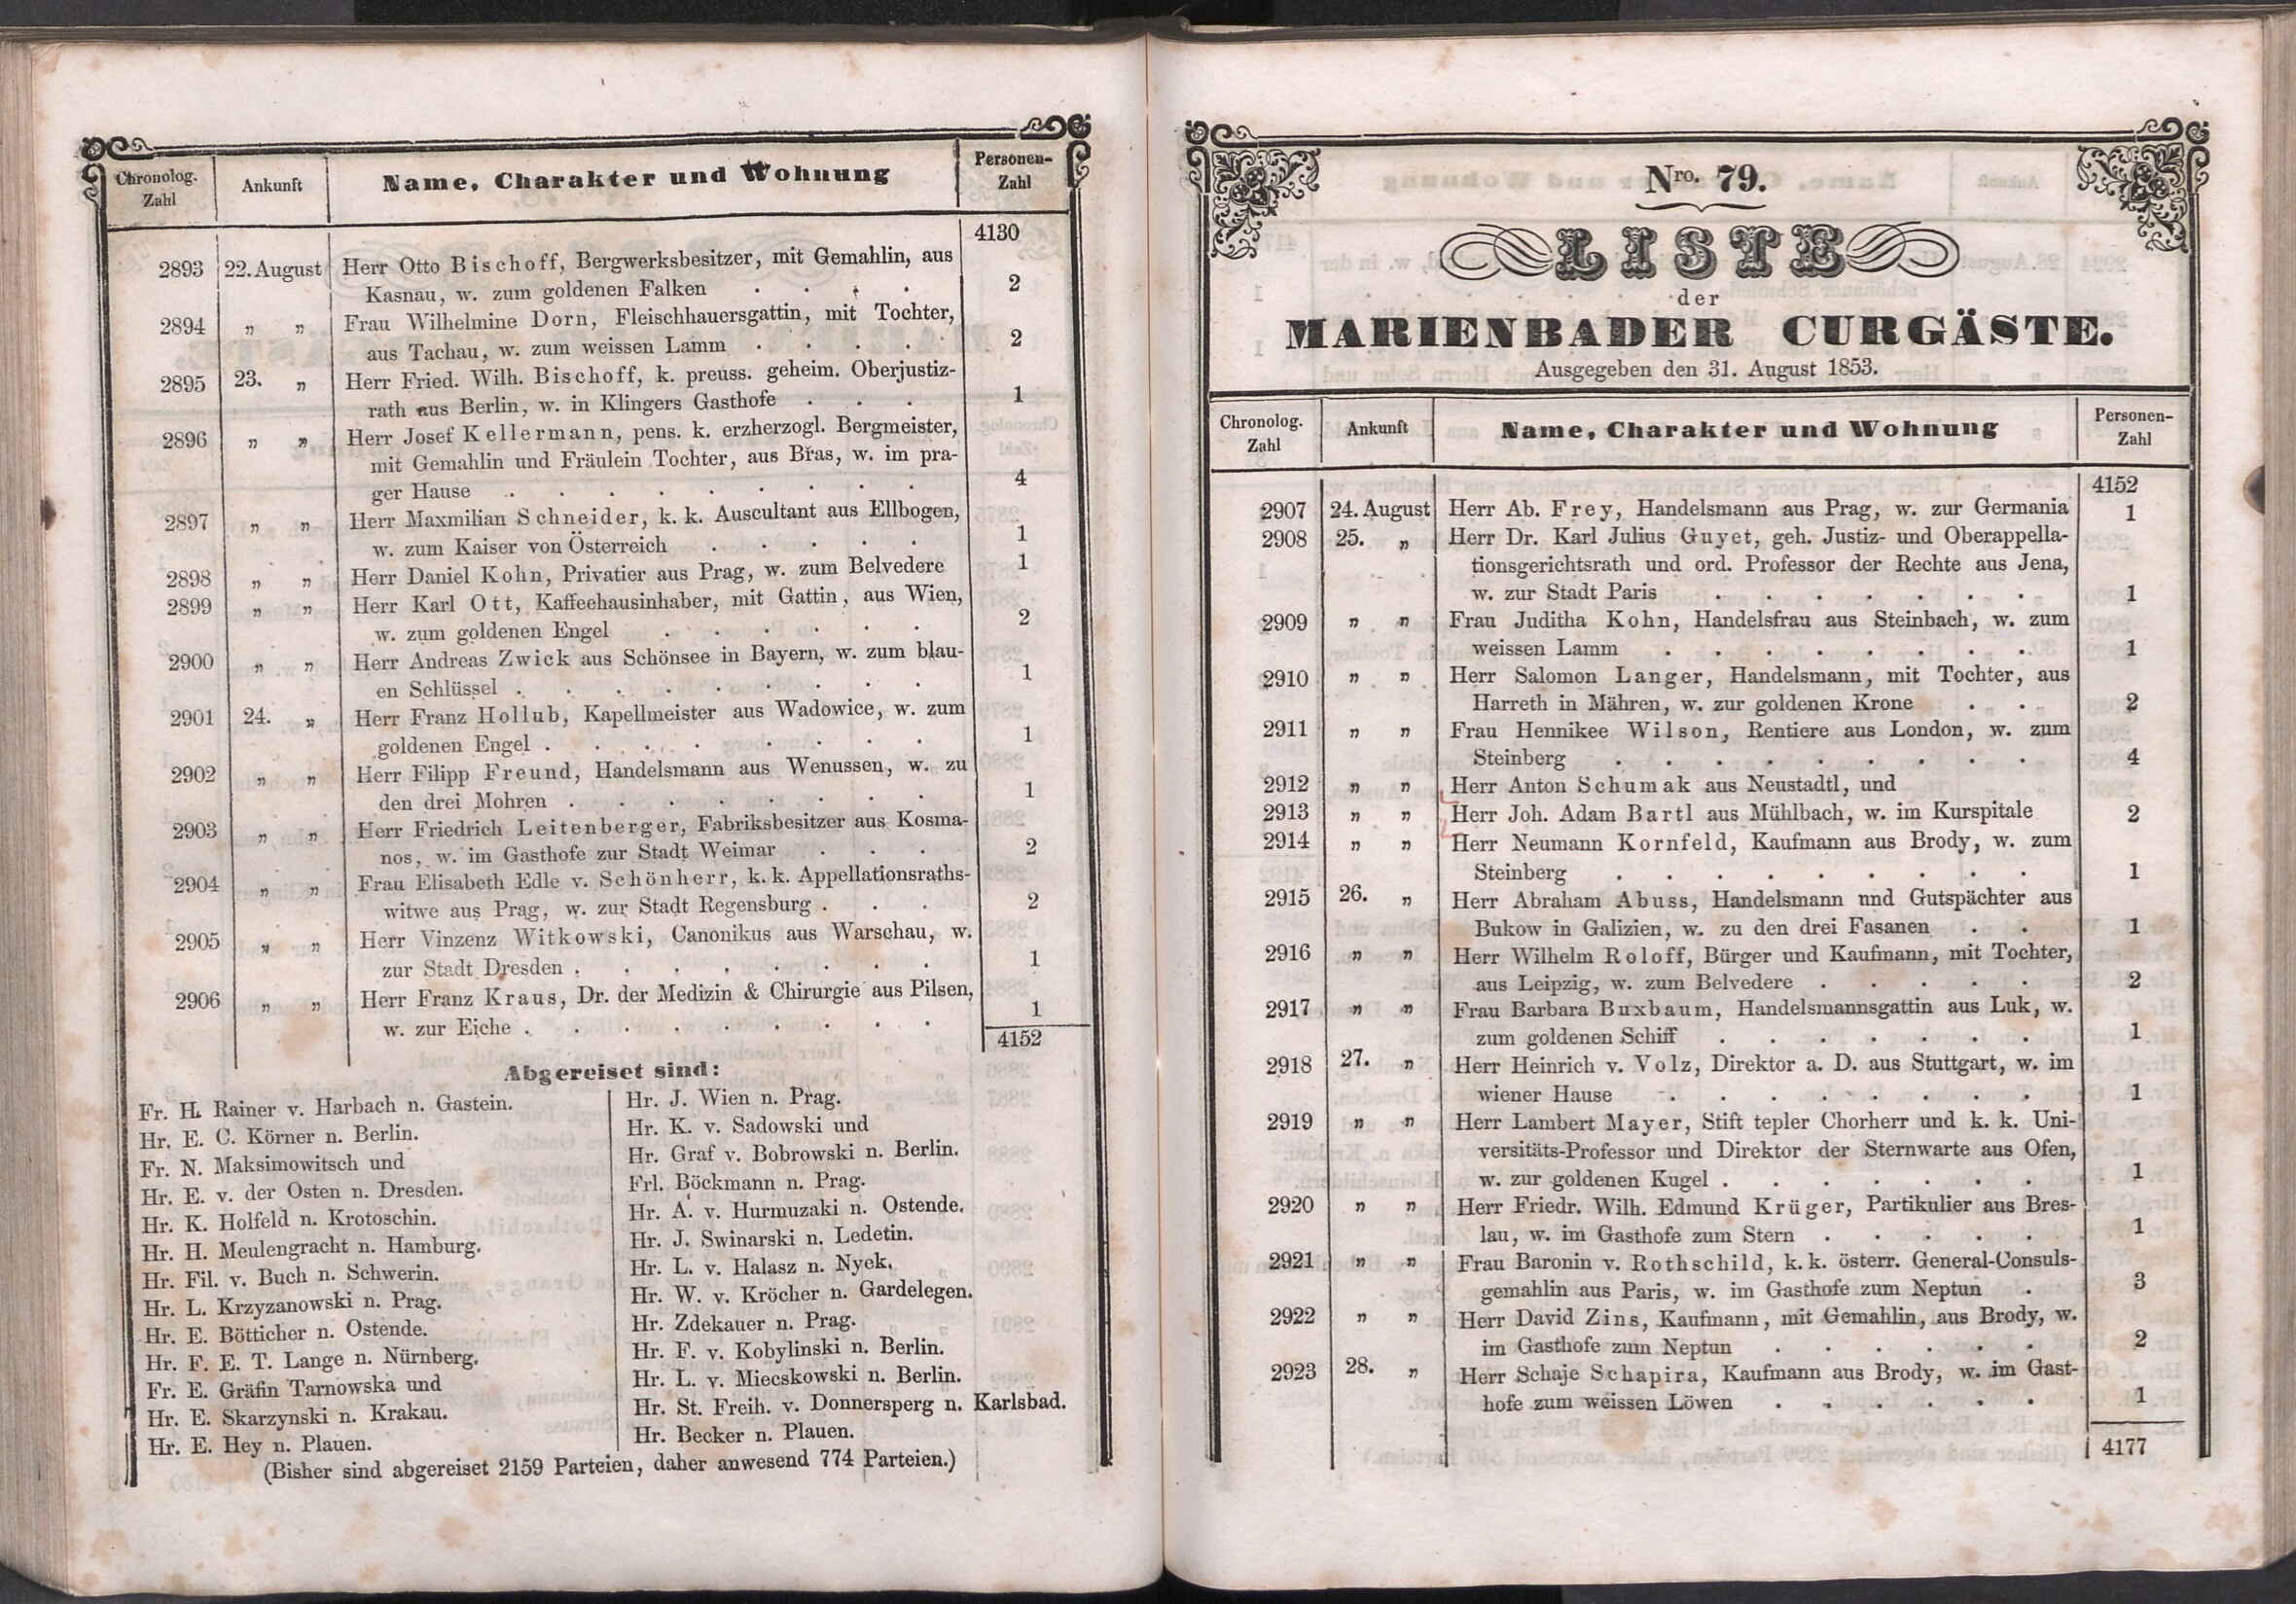 Chronolog. Zahl | Ankunft | Name, Charakter und Wohnung | Personen-Zahl
4130
2893 22. August Herr Otto Bischoff, Bergwerksbesitzer, mit Gemahlin, aus
Kasnau, w. zum goldenen Falken . . . . 2
2894 „ „ Frau Wilhelmine Dorn, Fleischhauersgattin, mit Tochter,
aus Tachau, w. zum weissen Lamm . . . . . 2
2895 23. „ Herr Fried. Wilh. Bischoff, k. preuss. geheim. Oberjustiz-
rath aus Berlin, w. in Klingers Gasthofe . . . 1
2896 „ „ Herr Josef Kellermann, pens. k. erzherzogl. Bergmeister,
mit Gemahlin und Fräulein Tochter, aus Břas, w. im pra-
ger Hause . . . . . . . . . 4
2897 „ „ Herr Maxmilian Schneider, k. k. Auscultant aus Ellbogen,
w. zum Kaiser von Österreich . . . . . 1
2898 „ „ Herr Daniel Kohn, Privatier aus Prag, w. zum Belvedere 1
2899 „ „ Herr Karl Ott, Kaffeehausinhaber, mit Gattin, aus Wien,
w. zum goldenen Engel . . . . . . 2
2900 „ „ Herr Andreas Zwick aus Schönsee in Bayern, w. zum blau-
en Schlüssel . . . . . . . . . 1
2901 24. „ Herr Franz Hollub, Kapellmeister aus Wadowice, w. zum
goldenen Engel . . . . . . . . 1
2902 „ „ Herr Filipp Freund, Handelsmann aus Wenussen, w. zu
den drei Mohren . . . . . . . . 1
2903 „ „ Herr Friedrich Leitenberger, Fabriksbesitzer aus Kosma-
nos, w. im Gasthofe zur Stadt Weimar . . . 2
2904 „ „ Frau Elisabeth Edle v. Schönherr, k. k. Appellationsraths-
witwe aus Prag, w. zur Stadt Regensburg . . . 2
2905 „ „ Herr Vinzenz Witkowski, Canonikus aus Warschau, w.
zur Stadt Dresden . . . . . . . . 1
2906 „ „ Herr Franz Kraus, Dr. der Medizin & Chirurgie aus Pilsen,
w. zur Eiche . . . . . . . . . 1
4152
Abgereiset sind:
Fr. H. Rainer v. Harbach n. Gastein.
Hr. E. C. Körner n. Berlin.
Fr. N. Maksimowitsch und
Hr. E. v. der Osten n. Dresden.
Hr. K. Holfeld n. Krotoschin.
Hr. H. Meulengracht n. Hamburg.
Hr. Fil. v. Buch n. Schwerin.
Hr. L. Krzyzanowski n. Prag.
Hr. E. Bötticher n. Ostende.
Hr. F. E. T. Lange n. Nürnberg.
Fr. E. Gräfin Tarnowska und
Hr. E. Skarzynski n. Krakau.
Hr. E. Hey n. Plauen.
Hr. J. Wien n. Prag.
Hr. K. v. Sadowski und
Hr. Graf v. Bobrowski n. Berlin.
Frl. Böckmann n. Prag.
Hr. A. v. Hurmuzaki n. Ostende.
Hr. J. Swinarski n. Ledetin.
Hr. L. v. Halasz n. Nyek.
Hr. W. v. Kröcher n. Gardelegen.
Hr. Zdekauer n. Prag.
Hr. F. v. Kobylinski n. Berlin.
Hr. L. v. Miecskowski n. Berlin.
Hr. St. Freih. v. Donnersperg n. Karlsbad.
Hr. Becker n. Plauen.
(Bisher sind abgereiset 2159 Parteien, daher anwesend 774 Parteien.)
Nro. 79.
LISTE
der
MARIENBADER CURGÄSTE.
Ausgegeben den 31. August 1853.
Chronolog. Zahl | Ankunft | Name, Charakter und Wohnung | Personen-Zahl
4152
2907 24. August Herr Ab. Frey, Handelsmann aus Prag, w. zur Germania 1
2908 25. „ Herr Dr. Karl Julius Guyet, geh. Justiz- und Oberappella-
tionsgerichtsrath und ord. Professor der Rechte aus Jena,
w. zur Stadt Paris . . . . . . . 1
2909 „ „ Frau Juditha Kohn, Handelsfrau aus Steinbach, w. zum
weissen Lamm . . . . . . . . 1
2910 „ „ Herr Salomon Langer, Handelsmann, mit Tochter, aus
Harreth in Mähren, w. zur goldenen Krone . . 2
2911 „ „ Frau Hennikee Wilson, Rentiere aus London, w. zum
Steinberg . . . . . . . . . 4
2912 „ „ Herr Anton Schumak aus Neustadtl, und
2913 „ „ Herr Joh. Adam Bartl aus Mühlbach, w. im Kurspitale 2
2914 „ „ Herr Neumann Kornfeld, Kaufmann aus Brody, w. zum
Steinberg . . . . . . . . . 1
2915 26. „ Herr Abraham Abuss, Handelsmann nnd Gutspächter aus
Bukow in Galizien, w. zu den drei Fasanen . . 1
2916 „ „ Herr Wilhelm Roloff, Bürger und Kaufmann, mit Tochter,
aus Leipzig, w. zum Belvedere . . . . . 2
2917 „ „ Frau Barbara Buxbaum, Handelsmannsgattin aus Luk, w.
zum goldenen Schiff . . . . . . . 1
2918 27. „ Herr Heinrich v. Volz, Direktor a. D. aus Stuttgart, w. im
wiener Hause . . . . . . . . 1
2919 „ „ Herr Lambert Mayer, Stift tepler Chorherr und k. k. Uni-
versitäts-Professor und Direktor der Sternwarte aus Ofen,
w. zur goldenen Kugel . . . . . . . 1
2920 „ „ Herr Friedr. Wilh. Edmund Krüger, Partikulier aus Bres-
lau, w. im Gasthofe zum Stern . . . . . 1
2921 „ „ Frau Baronin v. Rothschild, k. k. österr. General-Consuls-
gemahlin aus Paris, w. im Gasthofe zum Neptun . 3
2922 „ „ Herr David Zins, Kaufmann, mit Gemahlin, aus Brody, w.
im Gasthofe zum Neptun . . . . . . 2
2923 28. „ Herr Schaje Schapira, Kaufmann aus Brody, w. im Gast-
hofe zum weissen Löwen . . . . . . 1
4177